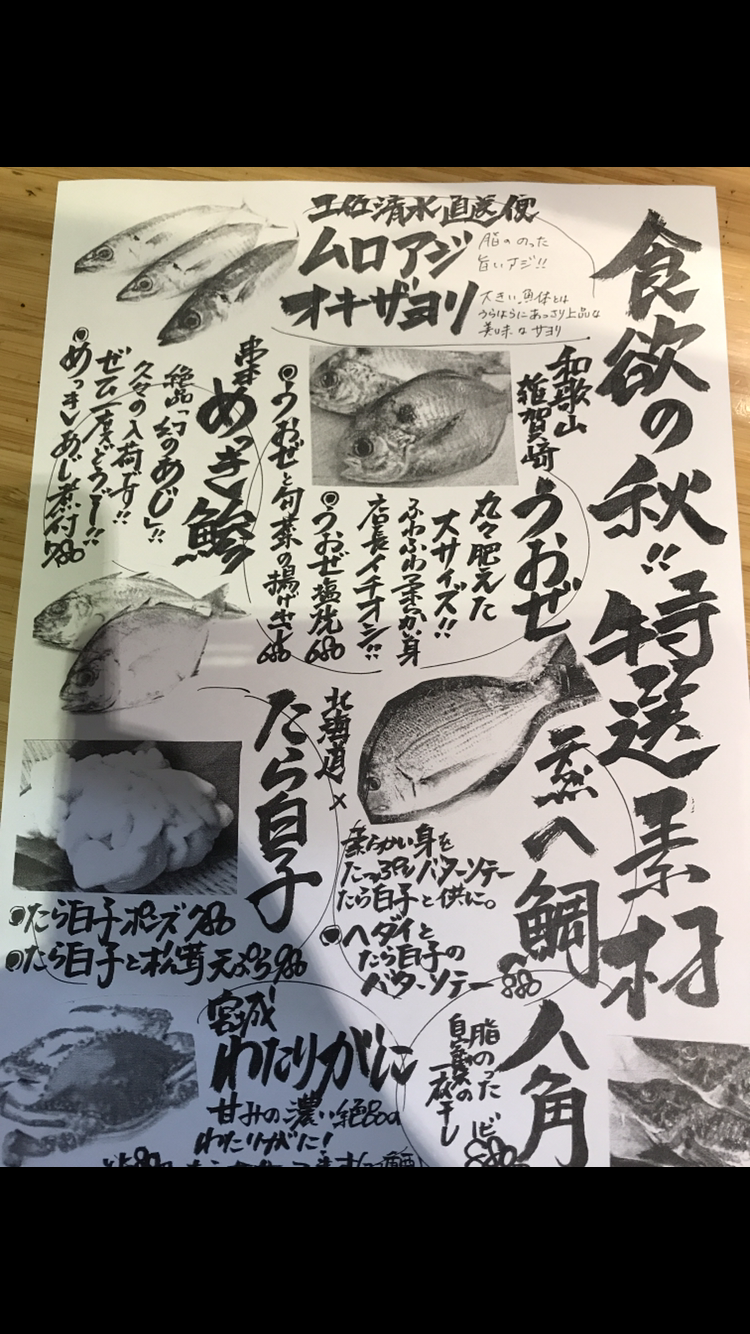 食欲の秋!!特選素材
土佐清水直送便
ムロアジ
脂ののった
旨いアジ!!
オキザヨリ
大きい魚体とは
うらはらにあっさり上品な
美味なサヨリ
和歌山
雑賀崎
うおぜ
丸々肥えた
大サイズ!!
ふわふわ柔らか身
店長イチオシ!!
◉うおぜ塩焼680
◉うおぜと旬菜の揚げ出し680
串本
めっき鯵
絶品「幻のあじ」!!
久々の入荷です!!
ぜひ一度どうぞー!!
◉めっきあじ煮付780
へ鯛
柔らかい身を
たっぷりバターソテー
たら白子と供に。
◉ヘダイと
たら白子の
バターソテー880
北海道×
たら白子
◉たら白子ポン酢780
◉たら白子と松茸天ぷら980
八角
脂のった
自家製の
一夜干し
宮城
わたりがに
甘みの濃い絶品の
わたりがに!